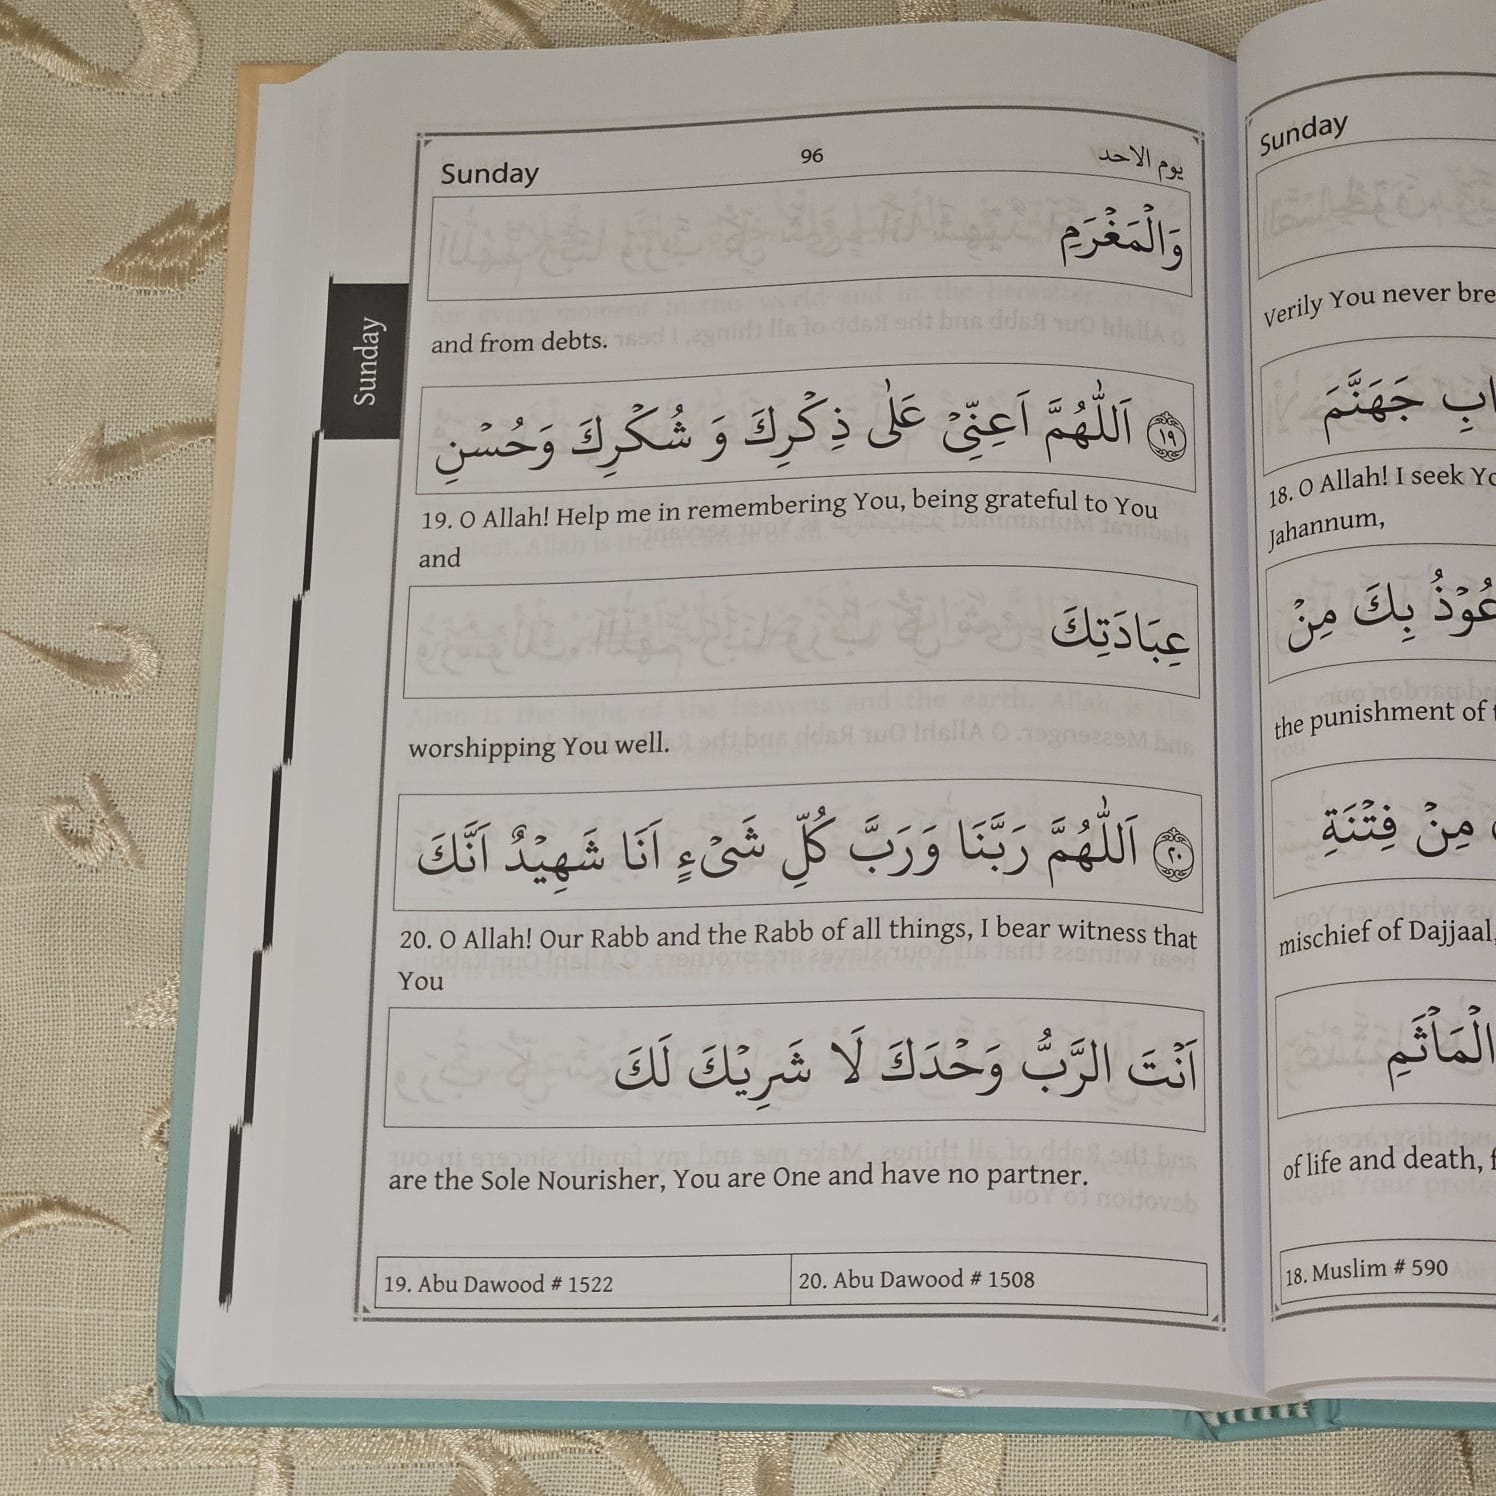 Sunday 96 يوم الاحد
وَالْمَغْرَمِ
and from debts.
Sunday
﴿١٩﴾ اَللّٰهُمَّ اَعِنِّيْ عَلٰى ذِكْرِكَ وَ شُكْرِكَ وَحُسْنِ
19. O Allah! Help me in remembering You, being grateful to You
and
عِبَادَتِكَ
worshipping You well.
﴿٢٠﴾ اَللّٰهُمَّ رَبَّنَا وَرَبَّ كُلِّ شَيْءٍ اَنَا شَهِيْدٌ اَنَّكَ
20. O Allah! Our Rabb and the Rabb of all things, I bear witness that
You
اَنْتَ الرَّبُّ وَحْدَكَ لَا شَرِيْكَ لَكَ
are the Sole Nourisher, You are One and have no partner.
19. Abu Dawood # 1522
20. Abu Dawood # 1508
Sunday
Verily You never
جَهَنَّمَ
18. O Allah! I seek
Jahannum,
بِكَ مِنْ
the punishment of
مِنْ فِتْنَةِ
mischief of Dajjaal,
الْمَاْثَمِ
of life and death,
18. Muslim # 590